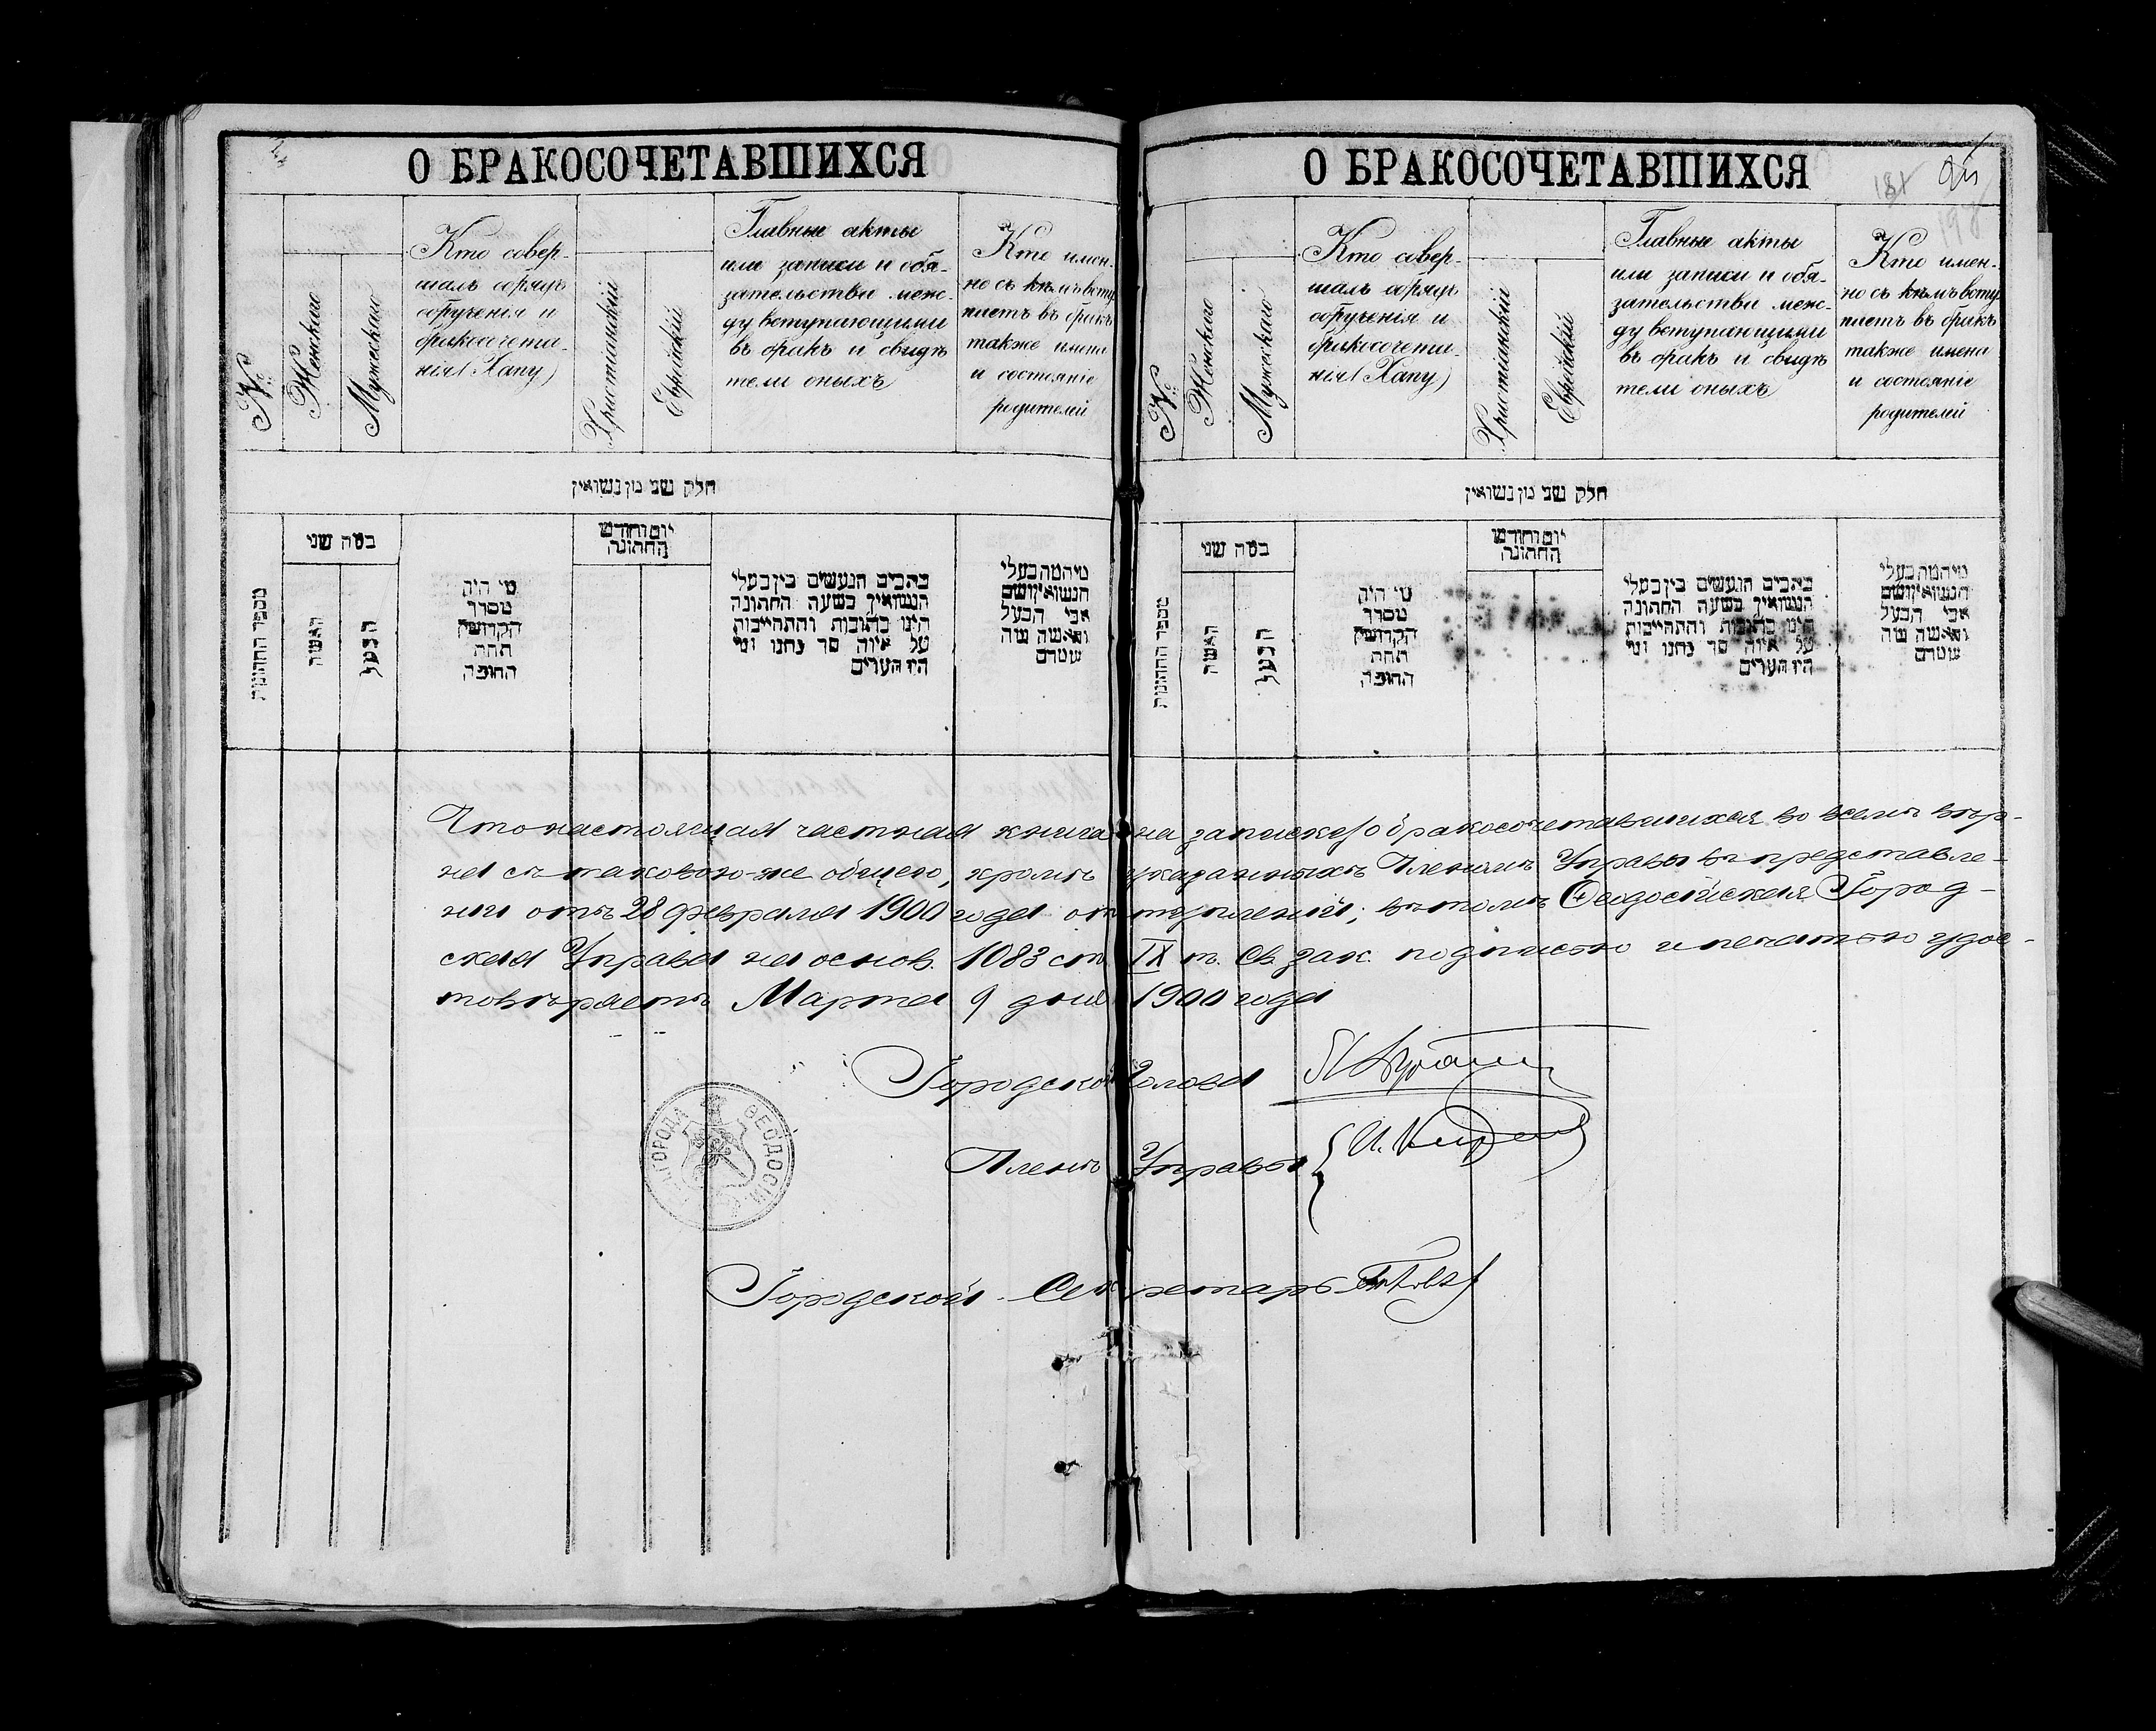 О БРАКОСОЧЕТАВШИХСЯ
№
Женскаго
Мужескаго
Кто совер-
шалъ обрядъ
обрученія и
бракосочета-
нія (Хапу)
Христіанскій
Еврейскій
Главные акты
или записи и обя-
зательства меж-
ду вступающими
въ бракъ и свидѣ
тели оныхъ
Кто имен-
но съ кѣмъ всту
паетъ въ бракъ
также имена
и состояніе
родителей
חלק שני מן נשואין
מספר החתונות
כמה שני
האשה
הבעל
מי היה
מסדר
הקדושין
תחת
החופה
יום וחודש
החתונה
כתבים הנעשים בין בעלי
הנשואין בשעה החתונה
היינו כתובות והתחייבות
על איזה סך נתנו ומי
היו העדים
מיהמה בעלי
הנשואין ושם
אבי הבעל
והאשה מה
שמם
О БРАКОСОЧЕТАВШИХСЯ
181
95
198
№
Женскаго
Мужескаго
Кто совер-
шалъ обрядъ
обрученія и
бракосочета-
нія (Хапу)
Христіанскій
Еврейскій
Главные акты
или записи и обя-
зательства меж-
ду вступающими
въ бракъ и свидѣ
тели оныхъ
Кто имен-
но съ кѣмъ всту
паетъ въ бракъ
также имена
и состояніе
родителей
חלק שני מן נשואין
מספר החתונות
כמה שני
האשה
הבעל
מי היה
מסדר
הקדושין
תחת
החופה
יום וחודש
החתונה
כתבים הנעשים בין בעלי
הנשואין בשעה החתונה
היינו כתובות והתחייבות
על איזה סך נתנו ומי
היו העדים
מיהמה בעלי
הנשואין ושם
אבי הבעל
והאשה מה
שמם
Что настоящая частная книга на записку о бракосочетавшихся во всемъ вѣр-
на съ таковою-же общею, кромѣ указанныхъ Членомъ Управы въ представле-
нии отъ 28 февраля 1900 года отступлений; въ томъ Ѳеодосийская Город-
ская Управа на основ. 1083 ст. IX т. Св. зак. подписью и печатью удос-
товѣряетъ Марта 9 дня 1900 года
Городской Голова
Членъ Управы
ГОРОДА ѲЕОДОСІИ
Городской Секретарь